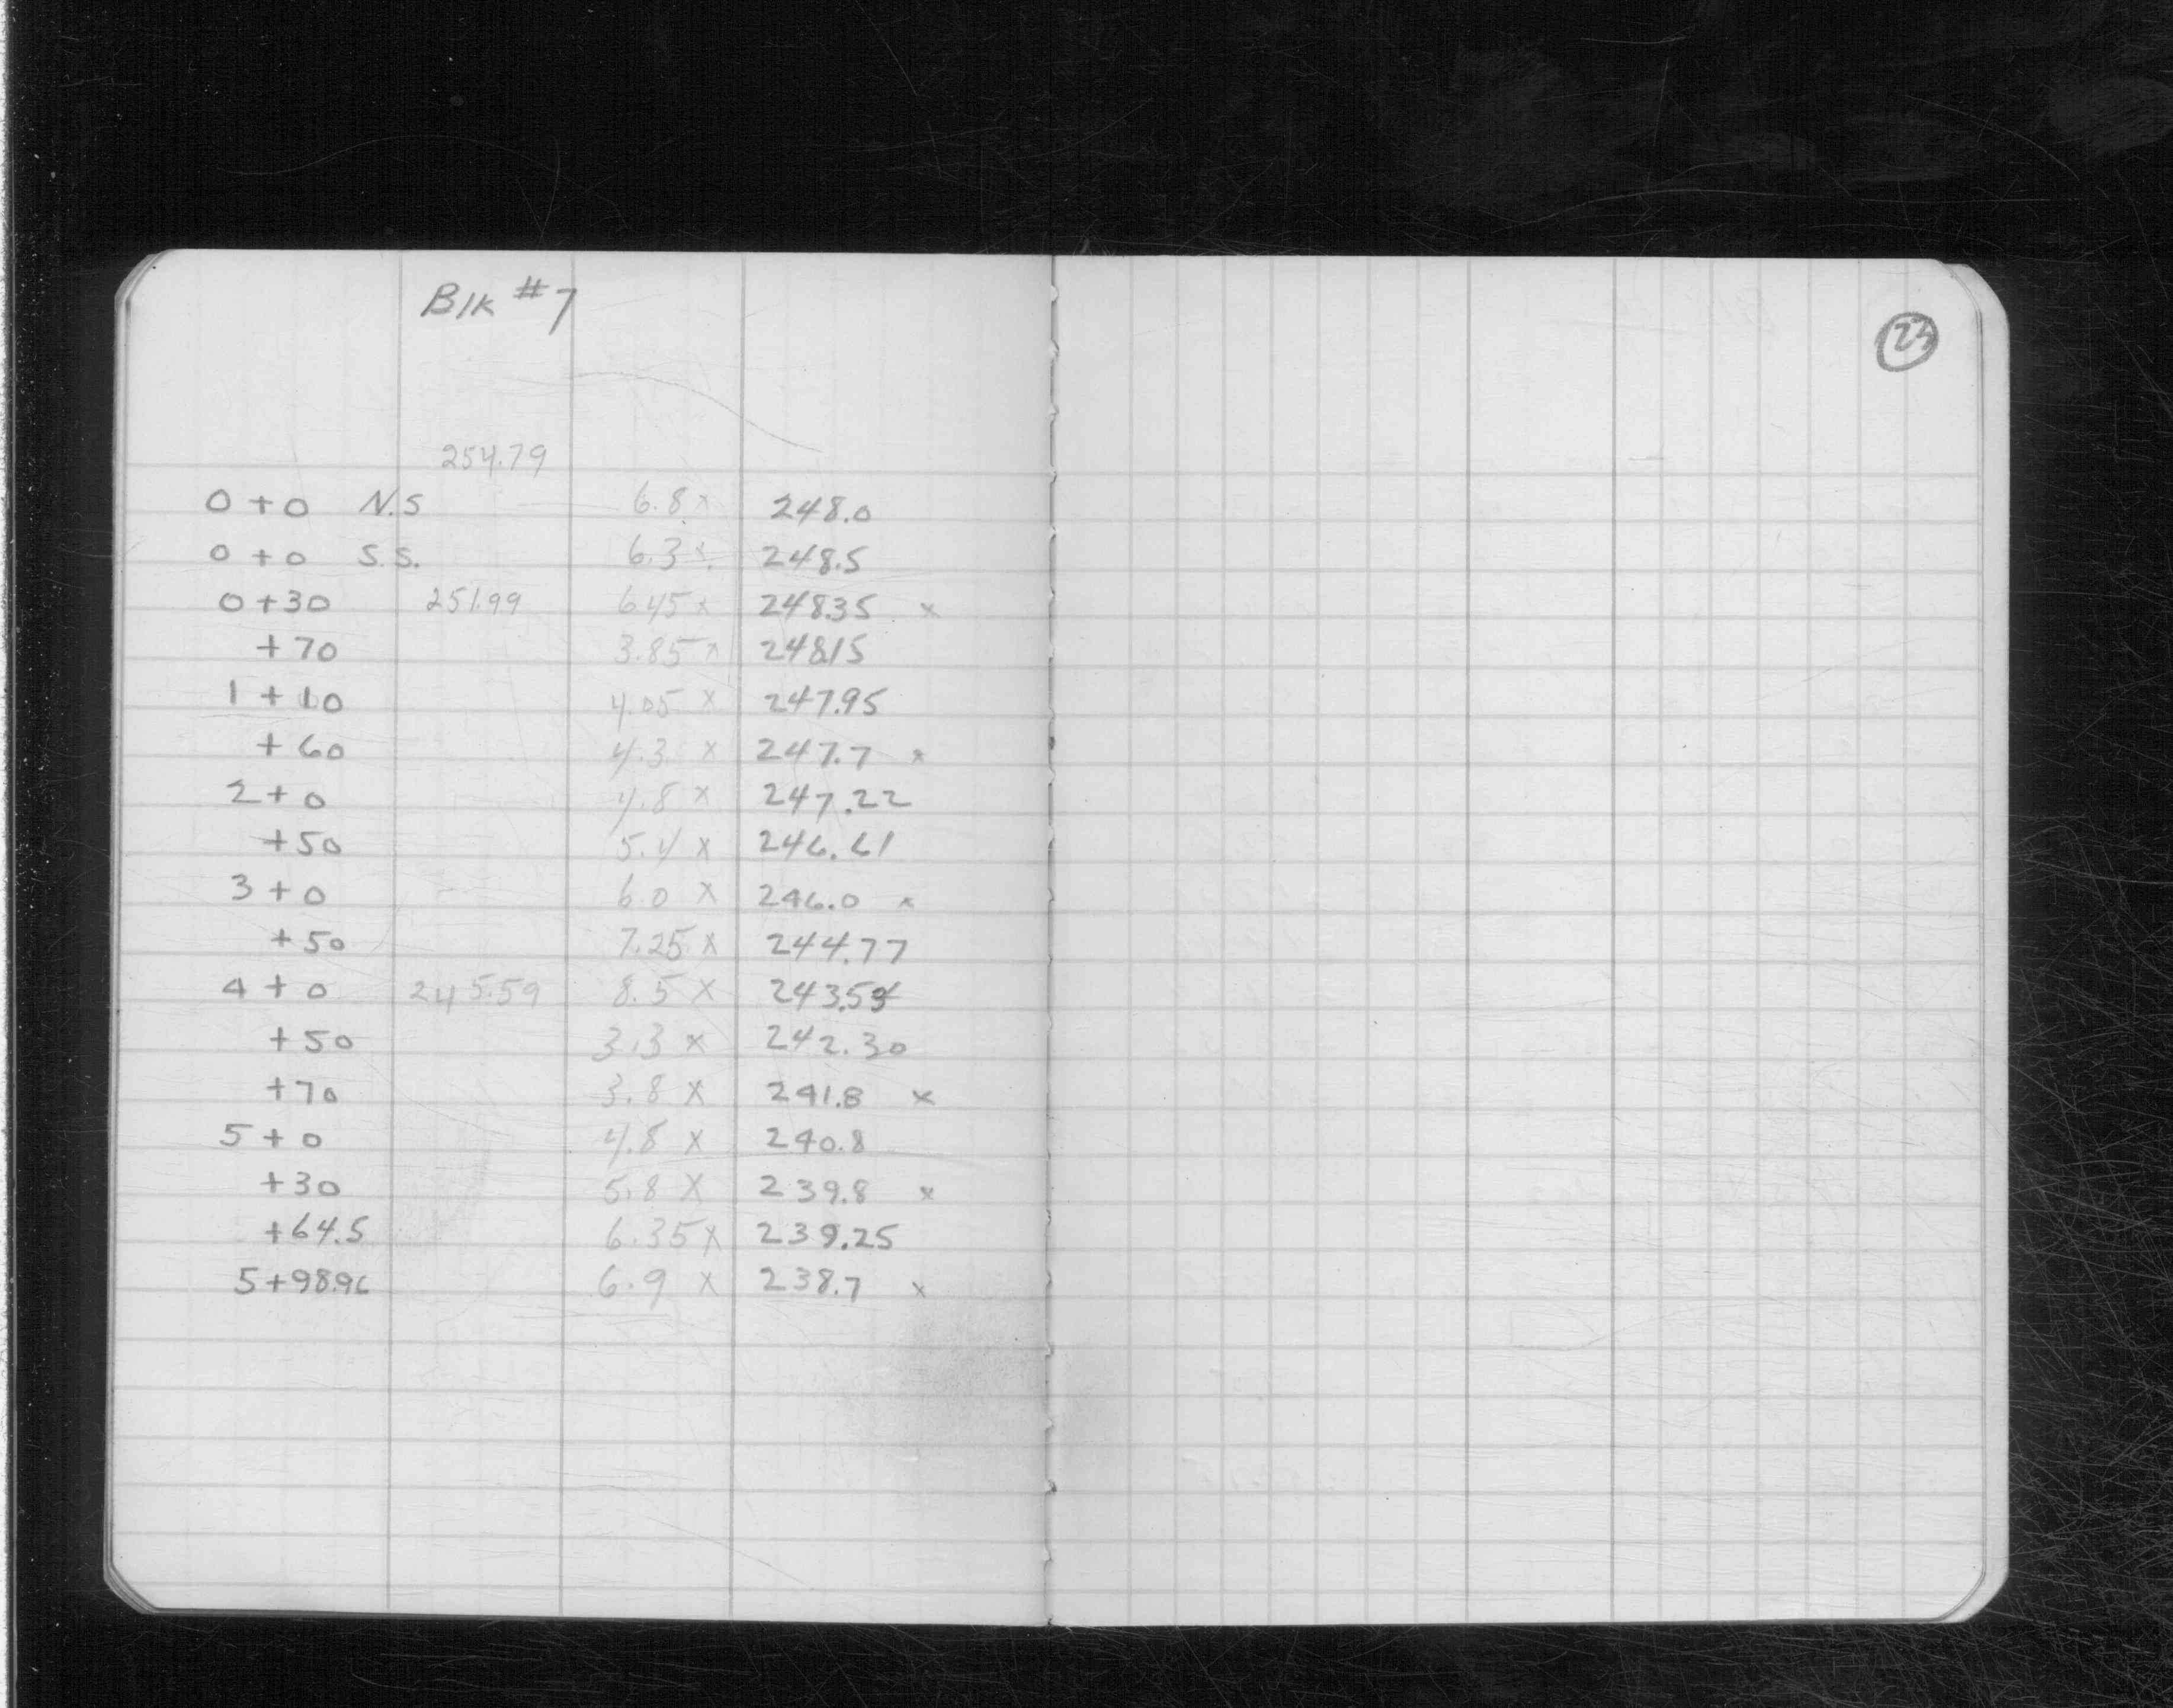 Blk #7
23
254.79
0+0 N.S 6.8 x 248.0
0+0 S.S. 6.3 x 248.5
0+30 251.99 6.45 x 248.35 x
+70 3.85 x 248.15
1+10 4.05 x 247.95
+60 4.3 x 247.7 x
2+0 4.8 x 247.22
+50 5.4 x 246.61
3+0 6.0 x 246.0 x
+50 7.25 x 244.77
4+0 245.59 8.5 x
+50 3.3 x 242.30
+70 3.8 x 241.8 x
5+0 4.8 x 240.8
+30 5.8 x 239.8 x
+64.5 6.35 x 239.25
5+98.96 6.9 x 238.7 x